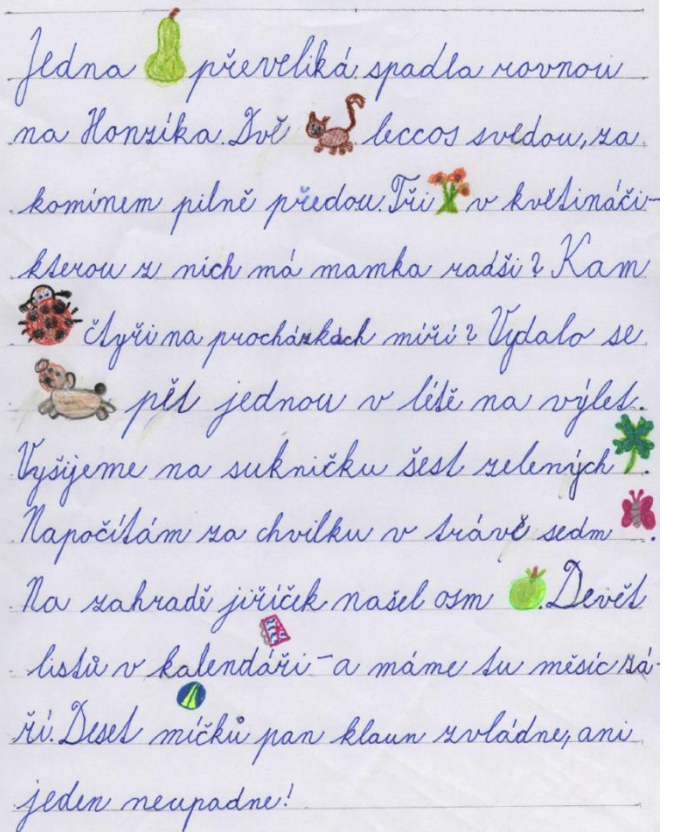 Jedna převeliká spadla rovnou
na Honzíka. Dvě leccos svedou, za
komínem pilně předou. Tři v květináči-
kterou z nich má mamka radši? Kam
čtyři na procházkách míří? Vydalo se
pět jednou v létě na výlet.
Vyšijeme na sukničku šest zelených .
Napočítám za chvilku v trávě sedm .
Na zahradě jiříček našel osm . Devět
listů v kalendáři - a máme tu měsíc zá-
ří. Deset míčků pan klaun zvládne, ani
jeden neupadne!